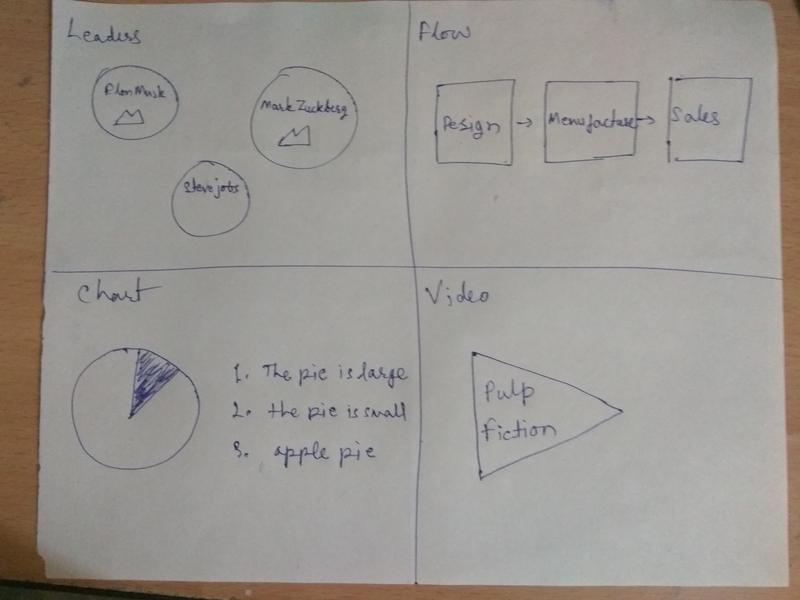 Leaders
Elon Musk
Mark Zuckberg
Steve jobs
Flow
Design
Menufacture
Sales
Chart
1. The pie is large
2. the pie is small
3. apple pie
Video
Pulp
Fiction